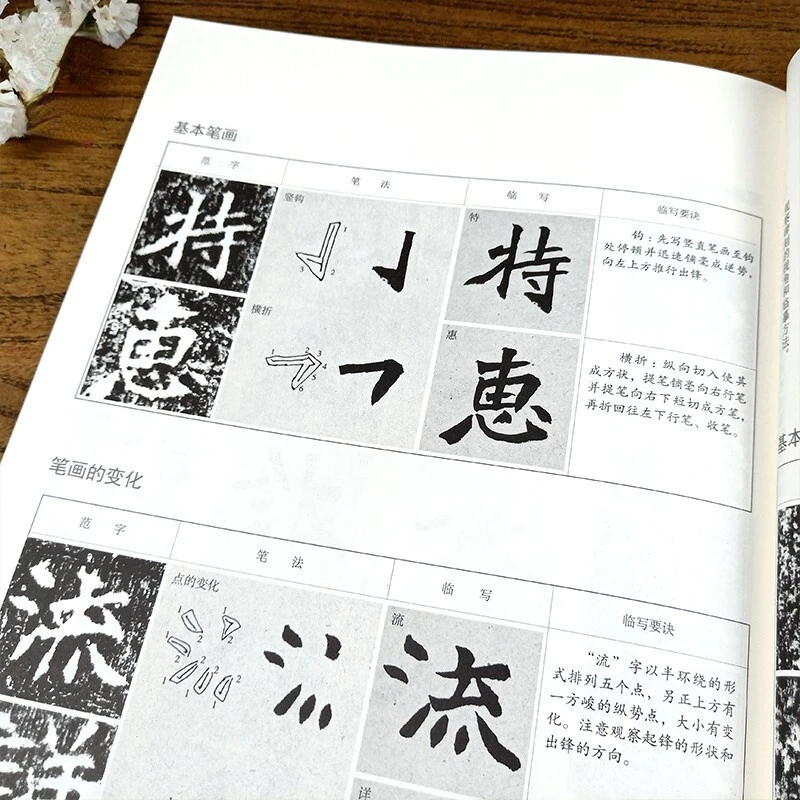 基本笔画
范 字
笔 法
临 写
临写要诀
特
竖钩
1
2
3
特
特
钩：先写竖直笔画至钩
处停顿并迅速铺毫成逆势，
向左上方推行出锋。
惠
横折
1
2
3
4
5
6
惠
惠
横折：纵向切入使其
成方状，提笔铺毫向右行笔
并提笔向右下短切成方笔，
再折回往左下行笔、收笔。
笔画的变化
范 字
笔 法
临 写
临写要诀
流
点的变化
1
2
1
2
1
2
1
2
1
2
1
2
流
流
“流”字以半环绕的形
式排列五个点，另正上方有
一方峻的纵势点，大小有变
化。注意观察起锋的形状和
出锋的方向。
詳
详
基本